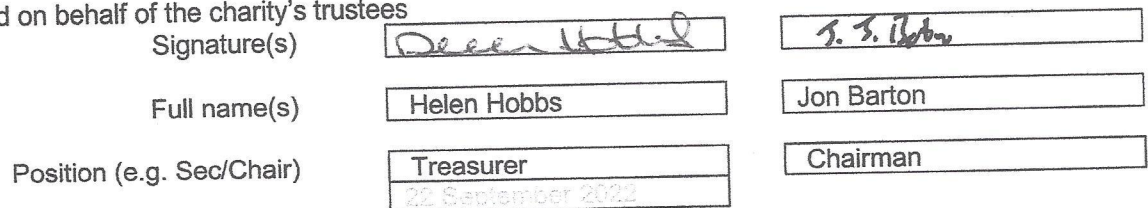 d on behalf of the charity's trustees
Signature(s)
J. J.
Full name(s) Helen Hobbs Jon Barton
Position (e.g. Sec/Chair) Treasurer Chairman
22 September 2022